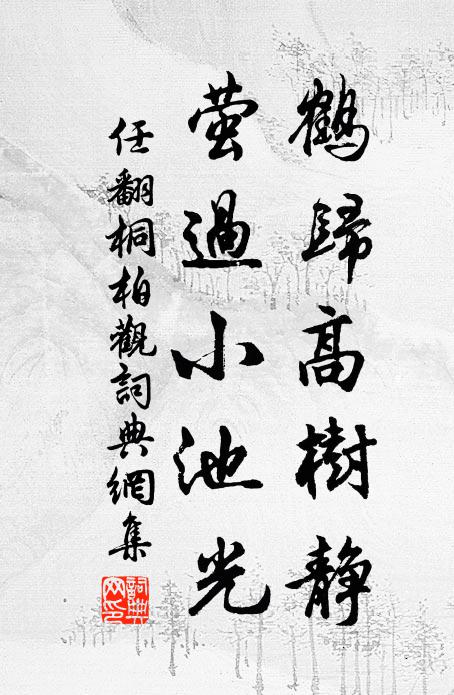 鶴歸高樹静
萤過小池光
任翻桐柏觀詞典網集
詞典网印